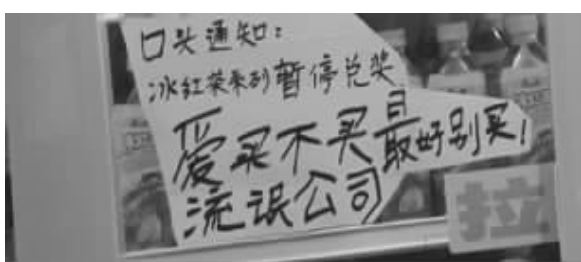 口头通知：
冰红茶系列暂停兑奖
爱买不买最好别买！
流氓公司
拉